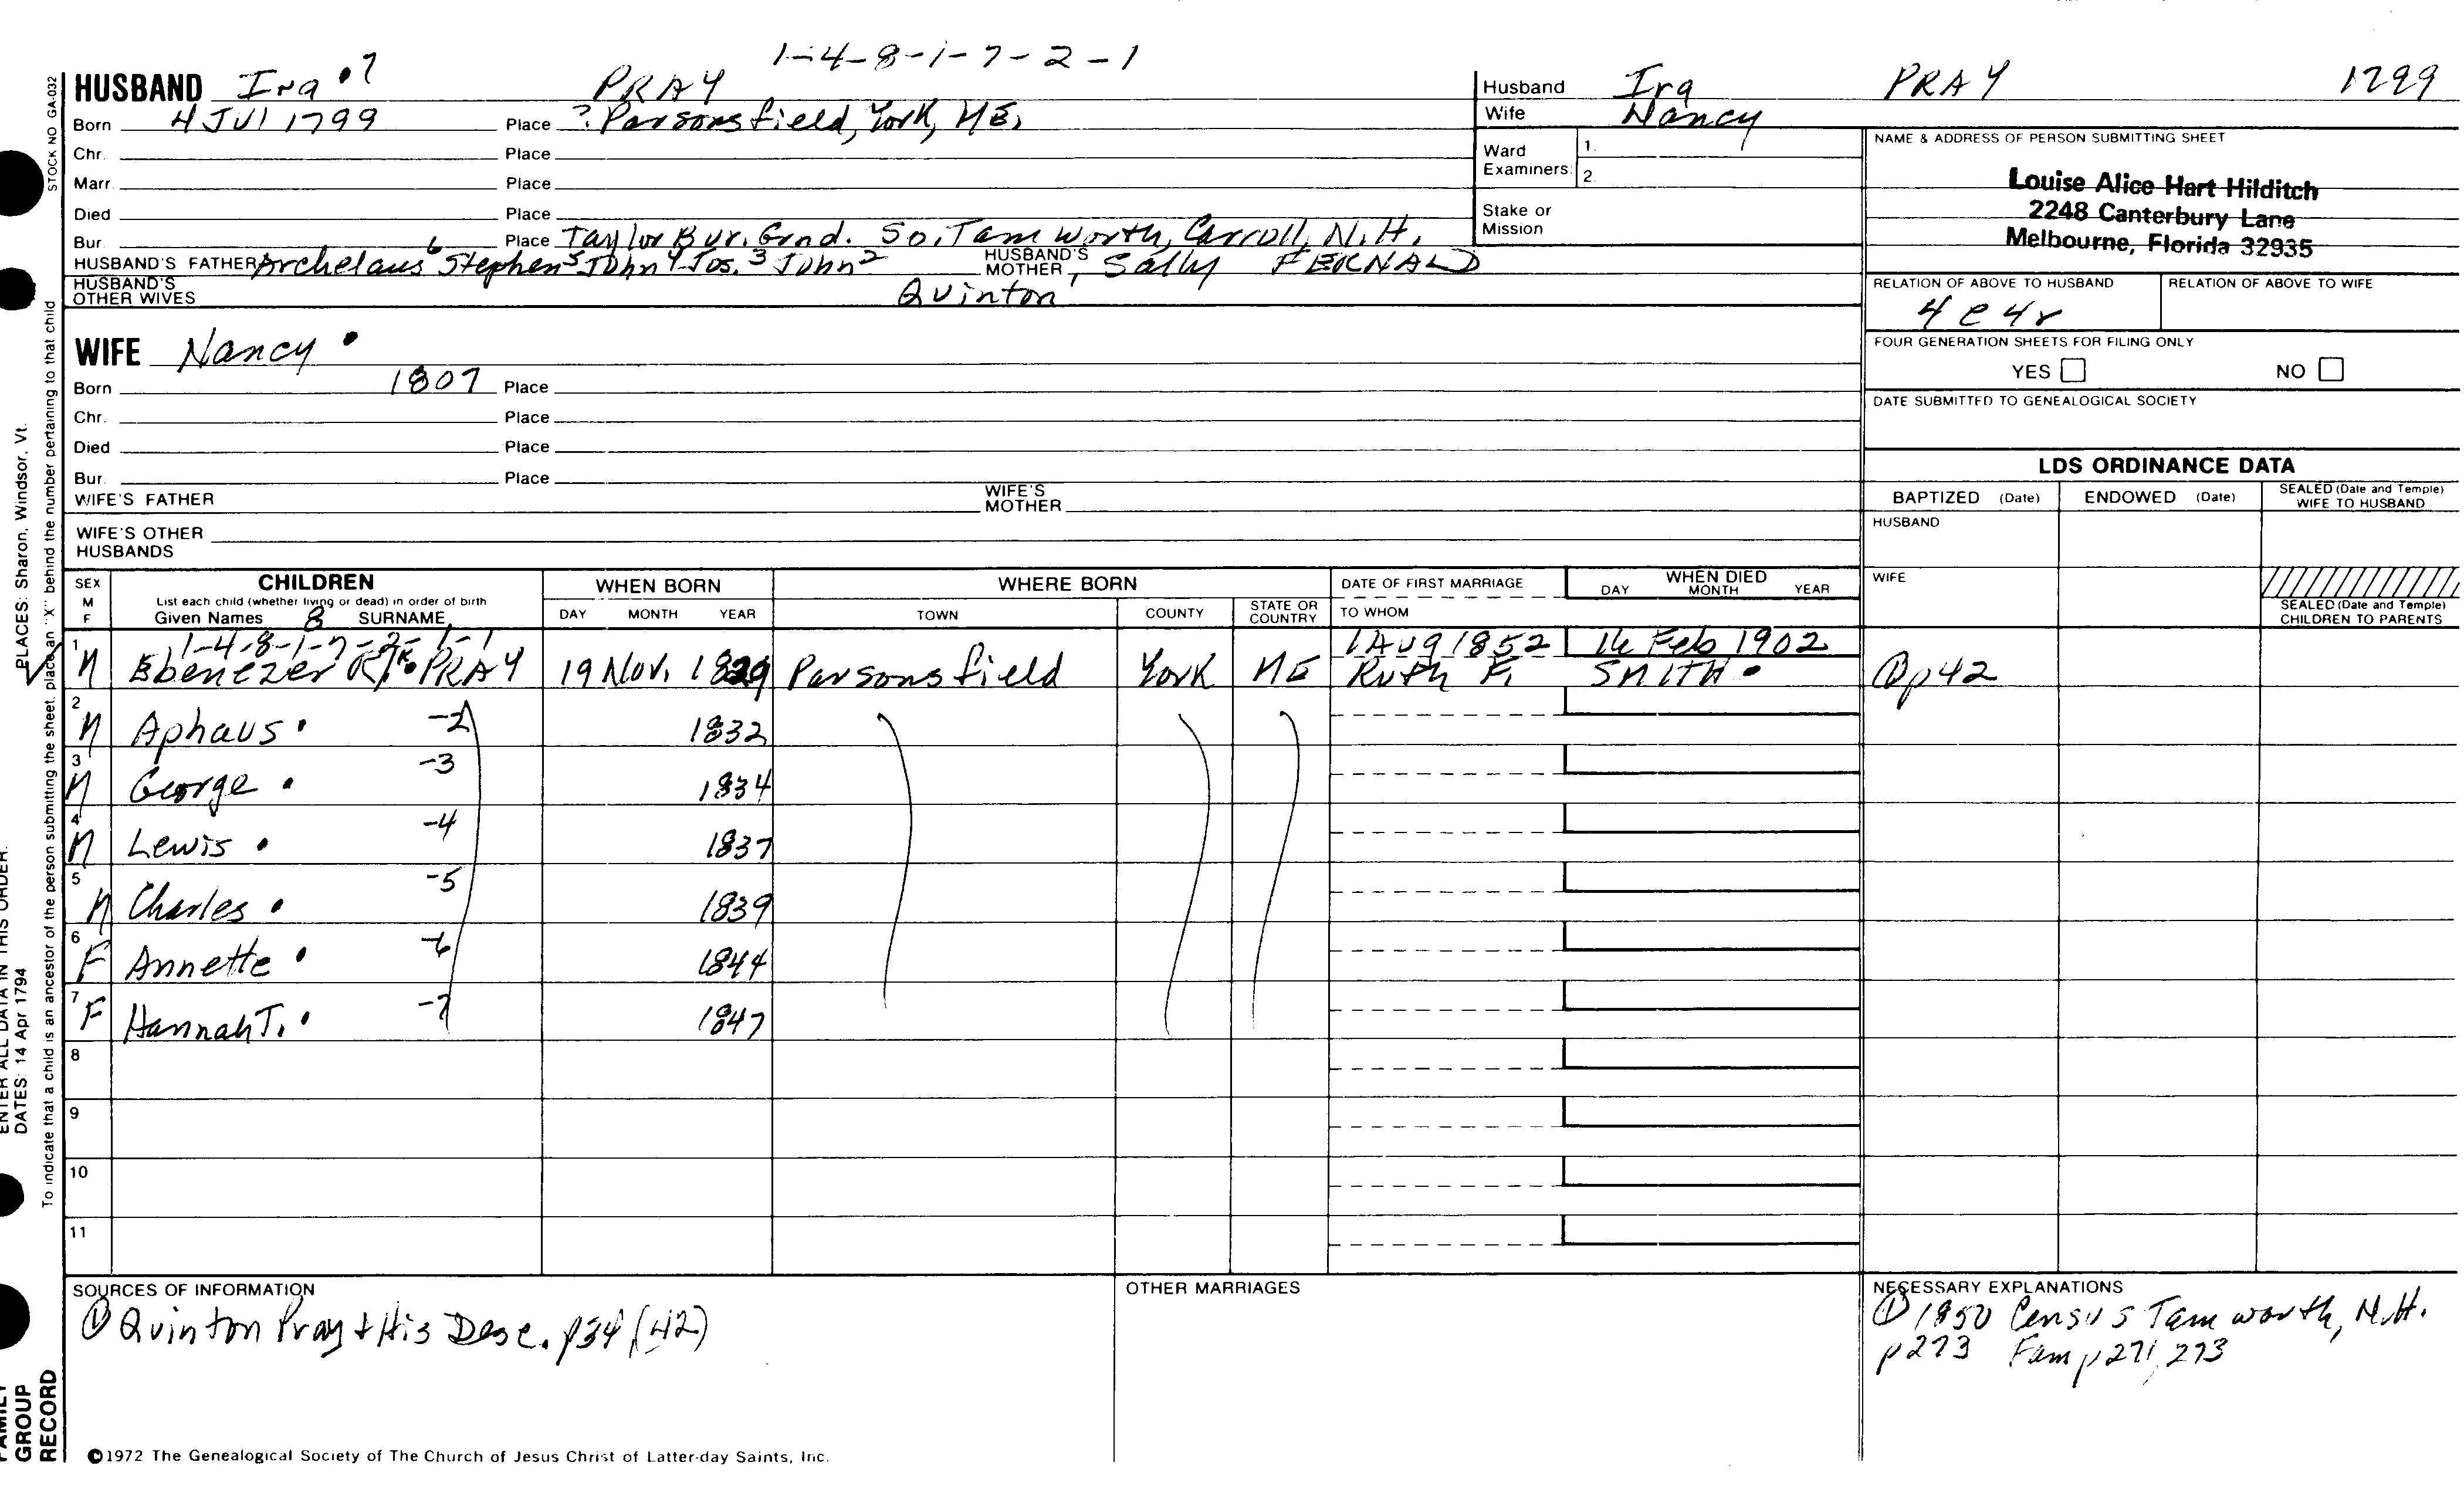 1-4-8-1-7-2-1
HUSBAND Ira 7 PRAY
Born 4 Jul 1799 Place ? Parsonsfield, York, ME.
Chr. Place
Marr. Place
Died Place
Bur. Place Taylor Bur. Grnd. So. Tamworth, Carroll, N.H.
HUSBAND'S FATHER Archelaus 6 Stephen 5 John 4 Jos. 3 John 2 HUSBAND'S MOTHER Sally FERNALD
HUSBAND'S OTHER WIVES Quinton 1
WIFE Nancy
Born 1807 Place
Chr. Place
Died Place
Bur. Place
WIFE'S FATHER WIFE'S MOTHER
WIFE'S OTHER HUSBANDS
Husband Ira PRAY 1799
Wife Nancy
Ward Examiners: 1. 2.
Stake or Mission
NAME & ADDRESS OF PERSON SUBMITTING SHEET
Louise Alice Hart Hilditch
2248 Canterbury Lane
Melbourne, Florida 32935
RELATION OF ABOVE TO HUSBAND RELATION OF ABOVE TO WIFE
4 c 4 r
FOUR GENERATION SHEETS FOR FILING ONLY
YES NO
DATE SUBMITTED TO GENEALOGICAL SOCIETY
LDS ORDINANCE DATA
BAPTIZED (Date) ENDOWED (Date) SEALED (Date and Temple) WIFE TO HUSBAND
HUSBAND
WIFE
SEALED (Date and Temple) CHILDREN TO PARENTS
SEX M F CHILDREN WHEN BORN WHERE BORN DATE OF FIRST MARRIAGE WHEN DIED
List each child (whether living or dead) in order of birth
Given Names 8 SURNAME DAY MONTH YEAR TOWN COUNTY STATE OR COUNTRY TO WHOM DAY MONTH YEAR
1-4-8-1-7-2-1-1 1 Aug 1852 16 Feb 1902
1 M Ebenezer R. PRAY 19 Nov. 1829 Parsonsfield York ME Ruth F. SMITH ① p42
2 M Aphaus -2 1832
3 M George -3 1834
4 M Lewis -4 1837
5 M Charles -5 1839
6 F Annette -6 1844
7 F Hannah T. -7 1847
8
9
10
11
SOURCES OF INFORMATION
① Quinton Pray + His Desc. p34 (42)
OTHER MARRIAGES
NECESSARY EXPLANATIONS
① 1850 Census Tamworth, N.H.
p273 Fam p271, 273
©1972 The Genealogical Society of The Church of Jesus Christ of Latter-day Saints, Inc.
STOCK NO GA-032
To indicate that a child is an ancestor of the person submitting the sheet, place an "X" behind the number pertaining to that child
PLACES: Sharon, Windsor, Vt.
ENTER ALL DATA IN THIS ORDER:
DATES: 14 Apr 1794
FAMILY GROUP RECORD